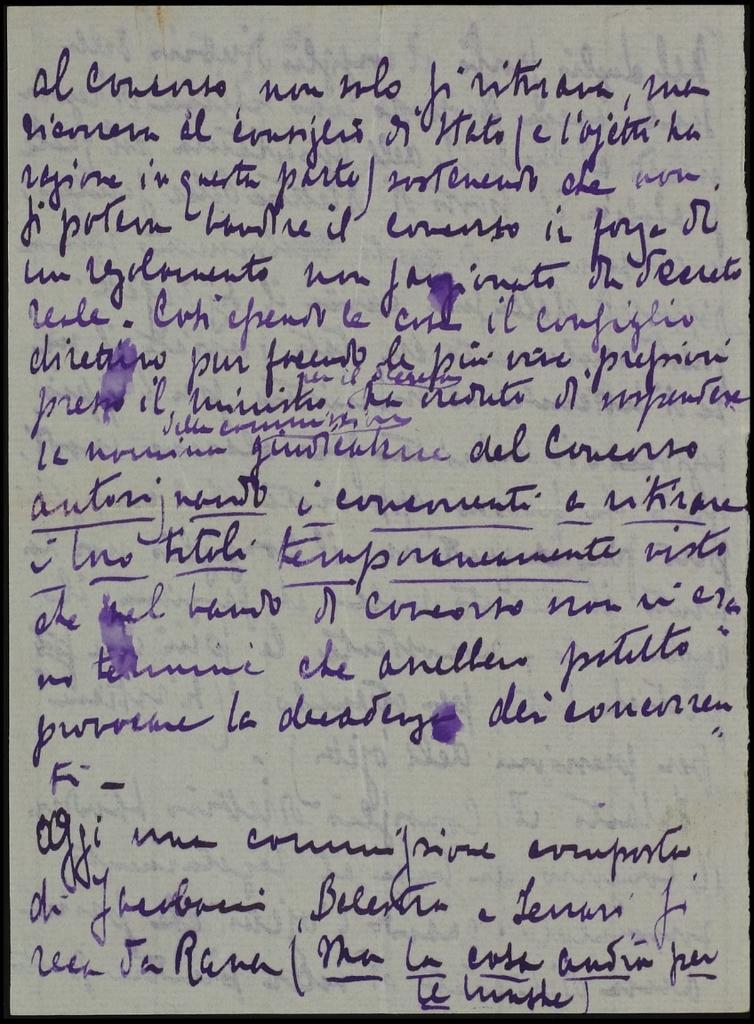 al concorso non solo si ritirava, ma
ricorreva al consiglio di Stato (e l'ojetti ha
ragione in questa parte) sostenendo che non
si poteva bandire il concorso in forza di
un regolamento non sanzionato da decreto
reale. Così essendo le cose il consiglio
direttivo pur facendo le più vive pressioni
presso il ministro per il decreto ha creduto di sospendere
la nomina della commissione giudicatrice del Concorso
autorizzando i concorrenti a ritirare
i loro titoli temporaneamente visto
che nel bando di concorso non vi era
no termini che avrebbero potuto
provocare la decadenza dei concorren
ti —
Oggi una commissione composta
di Jacobacci, Balestra e Ferrari si
reca da Rava (Ma la cosa andrà per
le lunghe)